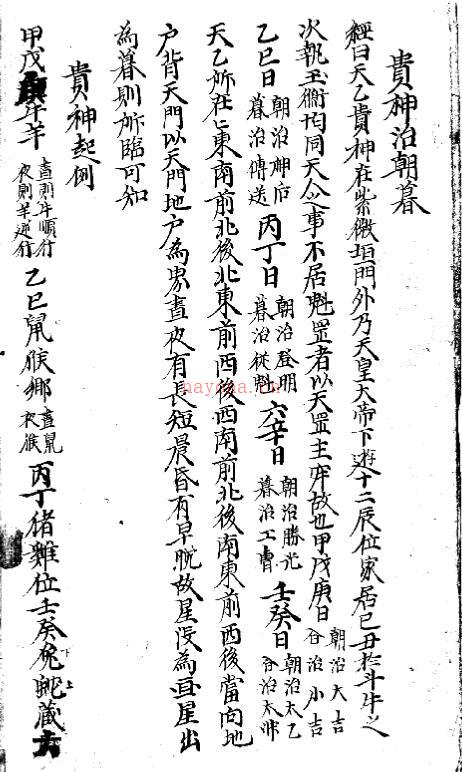 貴神治朝暮
經曰天乙貴神在紫微垣門外乃天皇大帝下遊十二辰位家居巳丑於斗牛之
次執玉衡均同天之事不居魁罡者以天罡主牢故也甲戊庚日朝治大吉暮治小吉
乙巳日朝治神后暮治傳送丙丁日朝治登明暮治從魁六辛日朝治勝光暮治工曹壬癸日朝治太乙暮治太冲
天乙所在東南前北後北東前西後西南前北後南東前西後當向地
户背天門以天門地户為界晝夜有長短晨昏有早晚故星没為亘星出
為暮則所臨可知
貴神起例
甲戊牛羊晝則牛順行夜則羊逆行乙巳鼠猴鄉晝鼠夜猴丙丁猪雞位壬癸兔蛇藏六